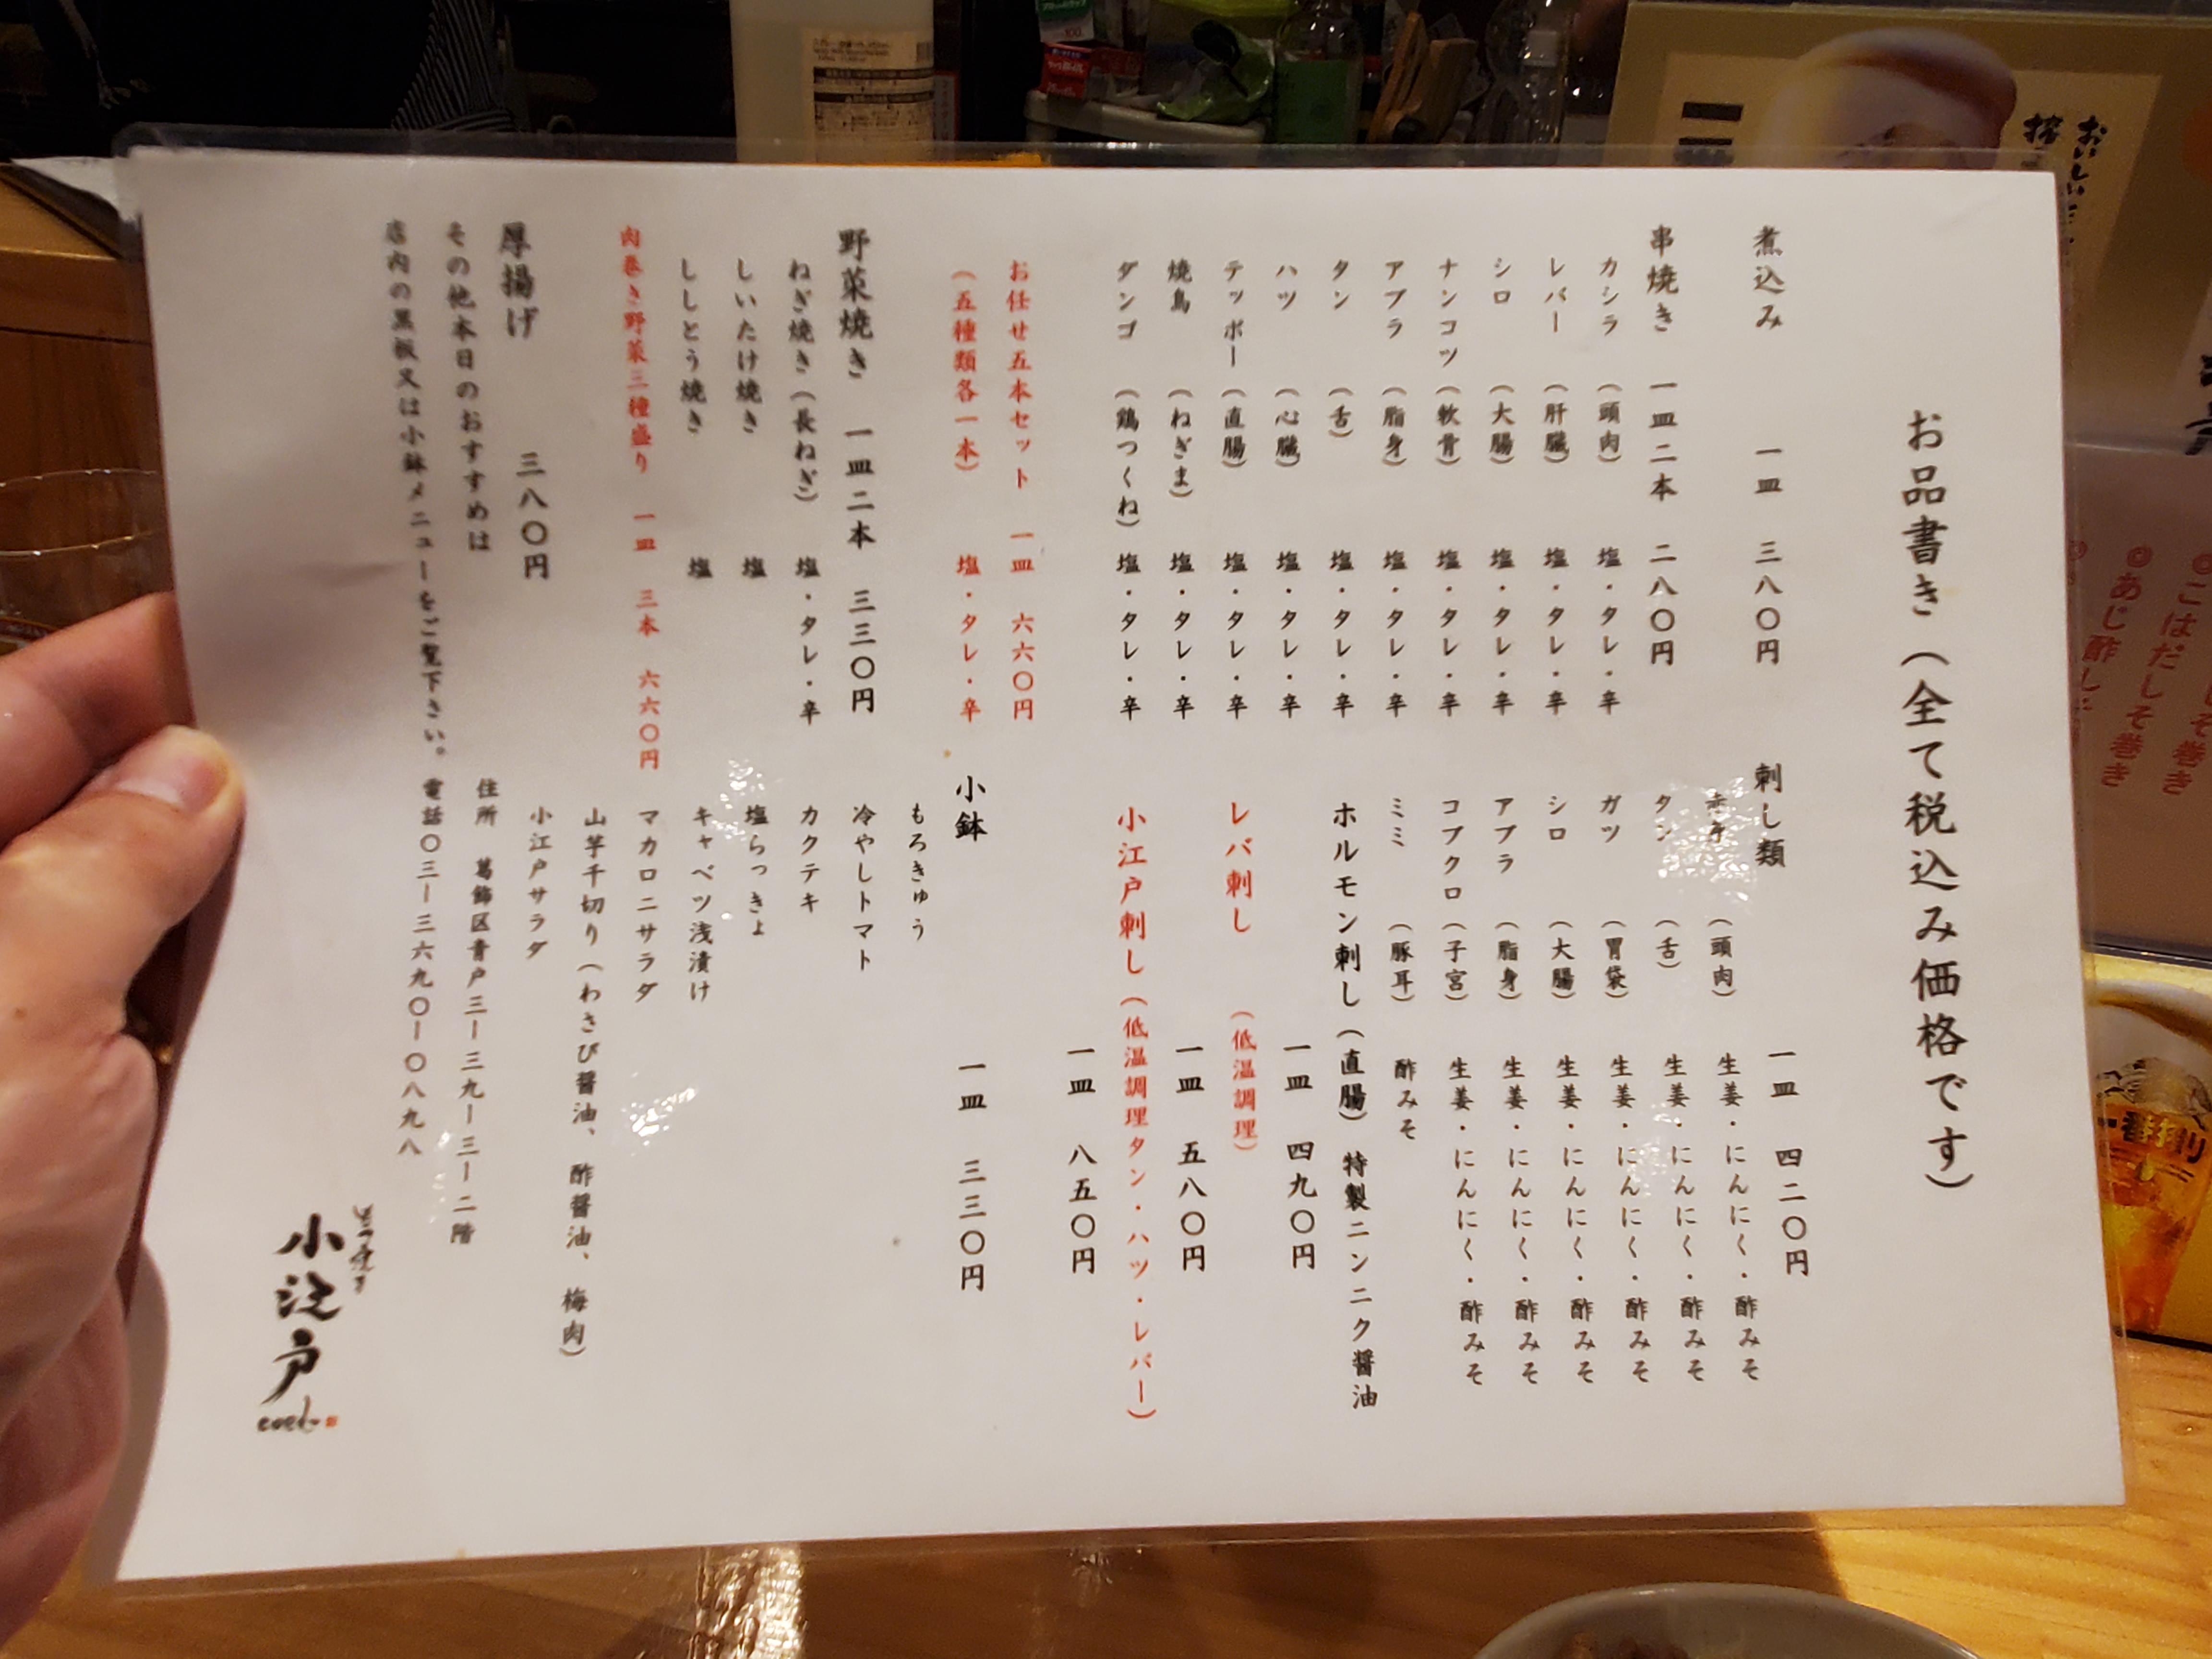 お品書き（全て税込み価格です）
煮込み 一皿 三八〇円
串焼き 一皿二本 二八〇円
カシラ （頭肉） 塩・タレ・辛
レバー （肝臓） 塩・タレ・辛
シロ （大腸） 塩・タレ・辛
ナンコツ （軟骨） 塩・タレ・辛
アブラ （脂身） 塩・タレ・辛
タン （舌） 塩・タレ・辛
ハツ （心臓） 塩・タレ・辛
テッポー （直腸） 塩・タレ・辛
焼鳥 （ねぎま） 塩・タレ・辛
ダンゴ （鶏つくね） 塩・タレ・辛
お任せ五本セット 一皿 六六〇円
（五種類各一本） 塩・タレ・辛
野菜焼き 一皿二本 三三〇円
ねぎ焼き（長ねぎ） 塩・タレ・辛
しいたけ焼き 塩
ししとう焼き 塩
肉巻き野菜三種盛り 一皿 三本 六六〇円
厚揚げ 三八〇円
その他本日のおすすめは
店内の黒板又は小鉢メニューをご覧下さい。
刺し類 一皿 四二〇円
（頭肉） 生姜・にんにく・酢みそ
タン （舌） 生姜・にんにく・酢みそ
ガツ （胃袋） 生姜・にんにく・酢みそ
シロ （大腸） 生姜・にんにく・酢みそ
アブラ （脂身） 生姜・にんにく・酢みそ
コブクロ （子宮） 生姜・にんにく・酢みそ
ミミ （豚耳） 酢みそ
ホルモン刺し（直腸） 特製ニンニク醤油
一皿 四九〇円
レバ刺し （低温調理）
一皿 五八〇円
小江戸刺し（低温調理タン・ハツ・レバー）
一皿 八五〇円
小鉢 一皿 三三〇円
もろきゅう
冷やしトマト
カクテキ
塩らっきょ
キャベツ浅漬け
マカロニサラダ
山芋千切り（わさび醤油、酢醤油、梅肉）
小江戸サラダ
住所 葛飾区青戸三ー三九ー三ー二階
電話〇三ー三六九〇ー〇八九八
小江戸
coedo
おいしい
こはだしそ巻き
◎あじ酢しそ巻き
一番搾り